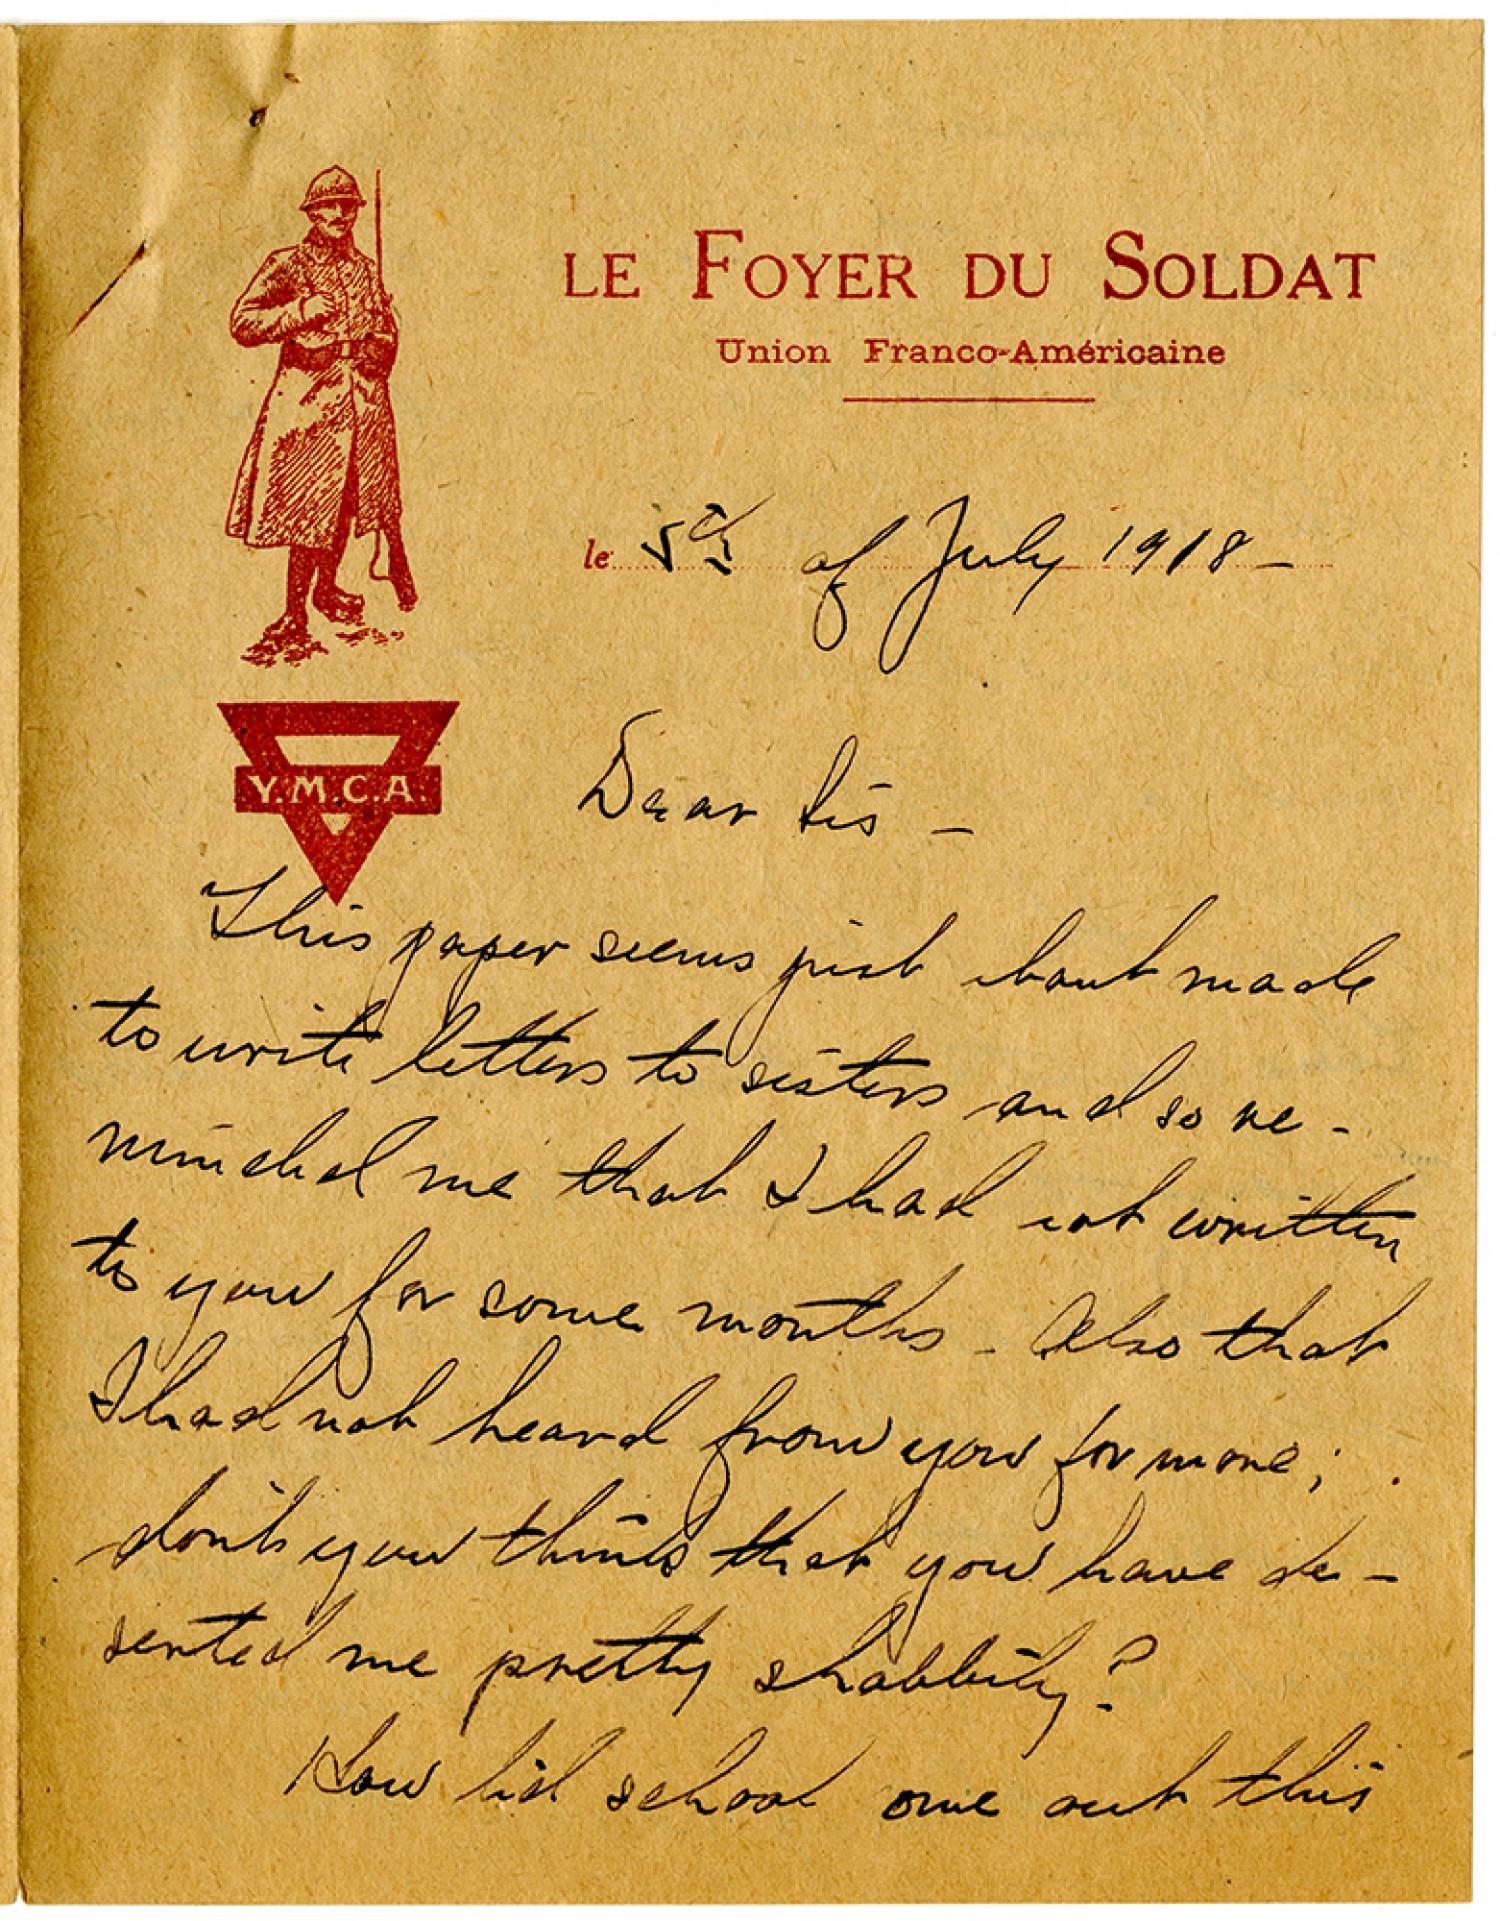 LE FOYER DU SOLDAT
Union Franco-Américaine
le 5th of July 1918 –
Y.M.C.A.
Dear Sis –
This paper seems just about made
to write letters to sisters and so re-
minded me that I had not written
to you for some months – Also that
I had not heard from you for more;
don't you think that you have de-
serted me pretty shabbily?
How did school come out this